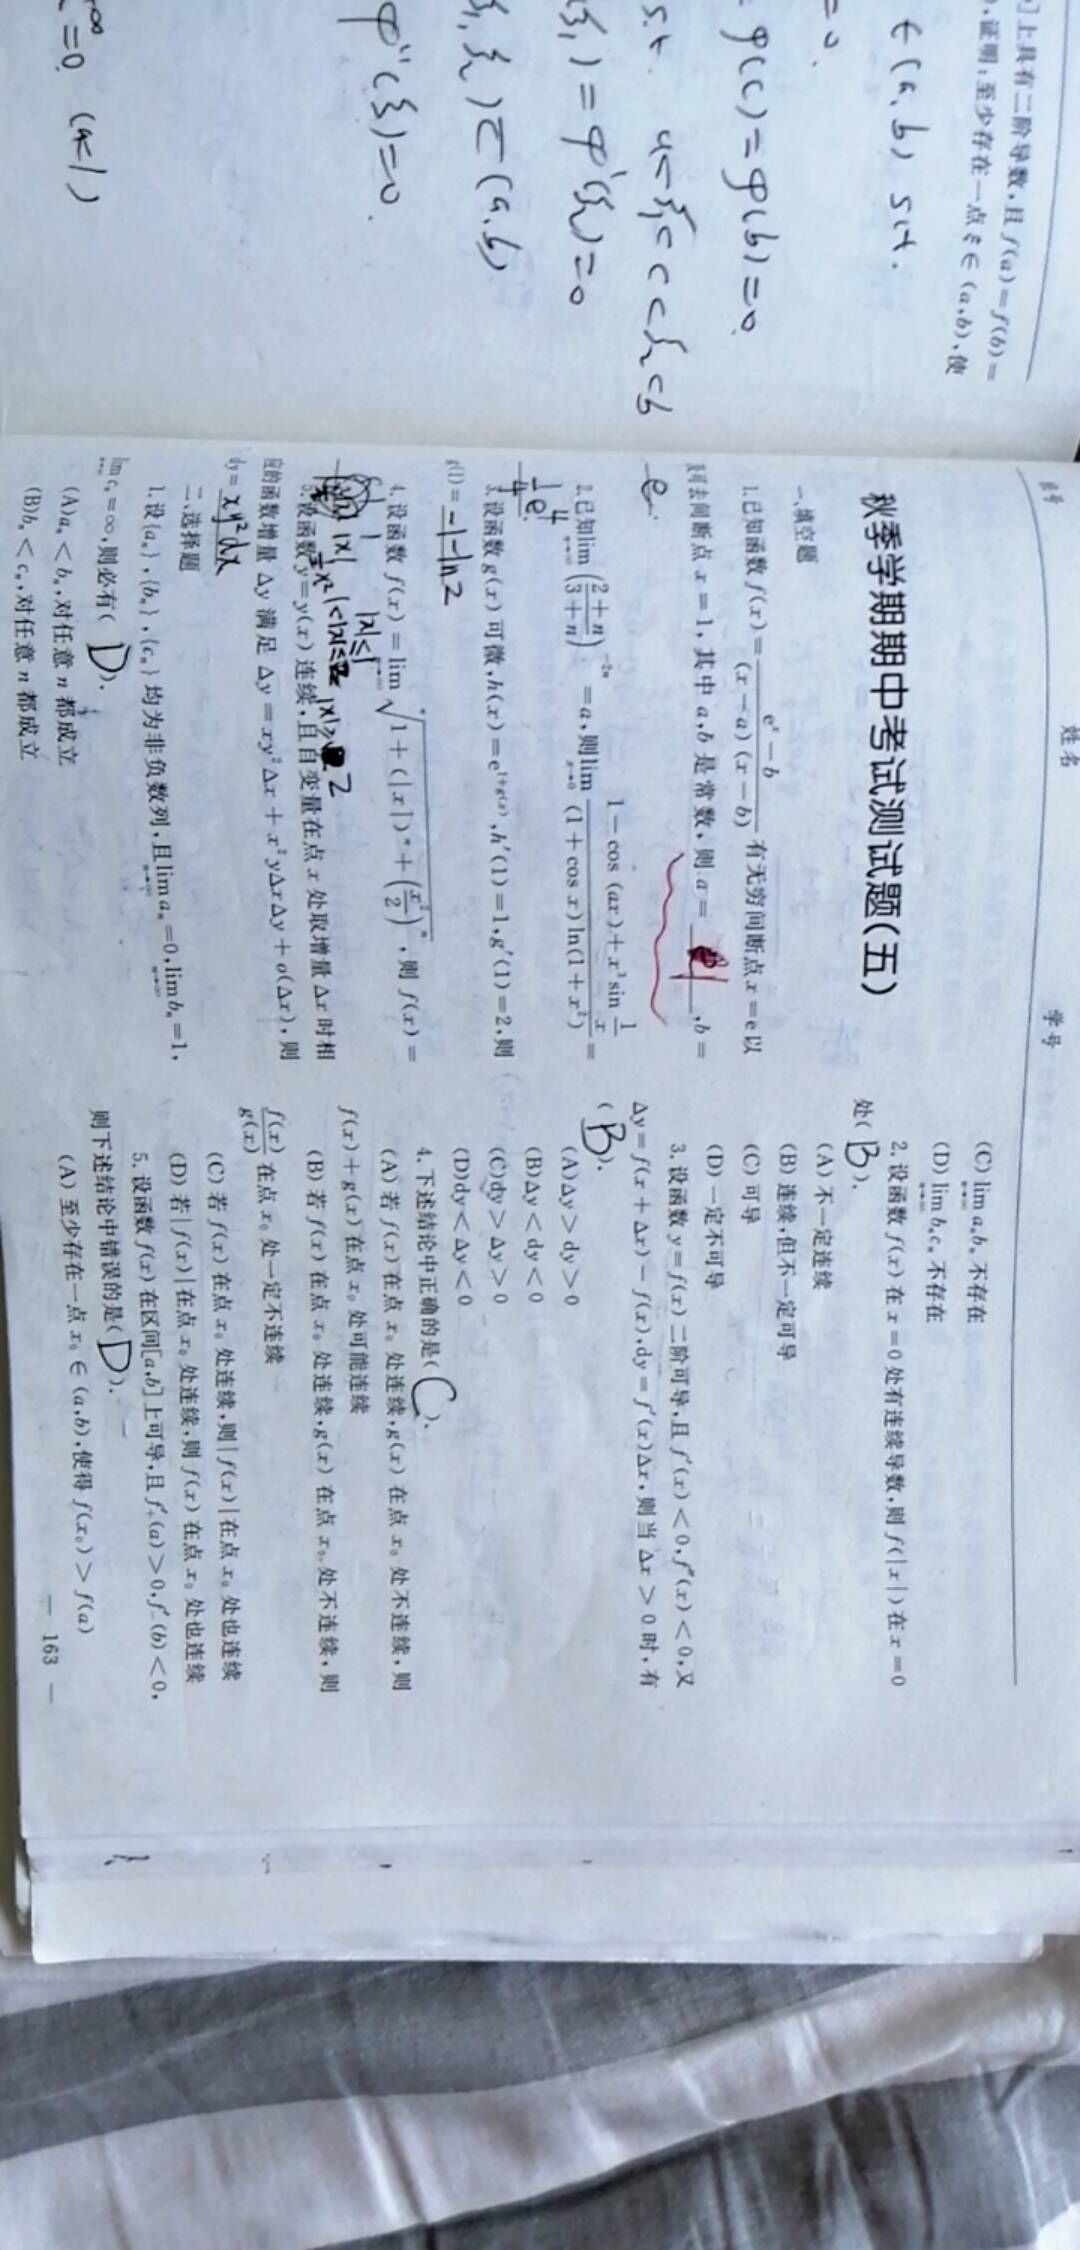 ]上具有二阶导数,且 f(a)=f(b)=
),证明:至少存在一点 ξ∈(a,b),使
∈(a,b) s.t.
=0.
φ(c)=φ(b)=0.
s.t. a<ξ₁<c<ξ₂<b
ξ₁)=φ'(ξ₂)=0
ξ₁,ξ₂)⊂(a,b)
φ''(ξ)=0.
=0. (a<1)
姓名
学号
秋季学期期中考试测试题(五)
一、填空题
1. 已知函数 f(x)=(e^x-b)/((x-a)(x-b)) 有无穷间断点 x=e 以
及可去间断点 x=1,其中 a,b 是常数,则 a= 1 ,b=
e.
2. 已知 lim_{n→∞} ((2+n)/(3+n))^{-2n} =a,则 lim_{x→0} (1-cos(ax)+x³sin(1/x))/((1+cos x)ln(1+x²)) =
¼e⁴
3. 设函数 g(x) 可微,h(x)=e^{1+g(x)},h'(1)=1,g'(1)=2,则
g(1)= -1-ln2
4. 设函数 f(x)=lim_{n→∞} ⁿ√(1+(|x|)ⁿ+(x²/2)ⁿ),则 f(x)=
1 |x|≤1
|x| 1<|x|≤2
½x² |x|>2
5. 设函数 y=y(x) 连续,且自变量在点 x 处取增量 Δx 时相
应的函数增量 Δy 满足 Δy=xy²Δx+x²yΔxΔy+o(Δx),则
dy= xy²dx
二、选择题
1. 设{aₙ},{bₙ},{cₙ}均为非负数列,且 lim_{n→∞} aₙ=0,lim_{n→∞} bₙ=1,
lim_{n→∞} cₙ=∞,则必有( D ).
(A) aₙ<bₙ,对任意 n 都成立
(B) bₙ<cₙ,对任意 n 都成立
(C) lim_{n→∞} aₙbₙ 不存在
(D) lim_{n→∞} bₙcₙ 不存在
2. 设函数 f(x) 在 x=0 处有连续导数,则 f(|x|) 在 x=0
处( B ).
(A) 不一定连续
(B) 连续,但不一定可导
(C) 可导
(D) 一定不可导
3. 设函数 y=f(x) 二阶可导,且 f'(x)<0,f''(x)<0,又
Δy=f(x+Δx)-f(x),dy=f'(x)Δx,则当 Δx>0 时,有
( B ).
(A) Δy>dy>0
(B) Δy<dy<0
(C) dy>Δy>0
(D) dy<Δy<0
4. 下述结论中正确的是( C ).
(A) 若 f(x) 在点 x₀ 处连续,g(x) 在点 x₀ 处不连续,则
f(x)+g(x) 在点 x₀ 处可能连续
(B) 若 f(x) 在点 x₀ 处连续,g(x) 在点 x₀ 处不连续,则
f(x)/g(x) 在点 x₀ 处一定不连续
(C) 若 f(x) 在点 x₀ 处连续,则|f(x)|在点 x₀ 处也连续
(D) 若|f(x)|在点 x₀ 处连续,则 f(x) 在点 x₀ 处也连续
5. 设函数 f(x) 在区间[a,b]上可导,且 f'₊(a)>0,f'₋(b)<0,
则下述结论中错误的是( D ).
(A) 至少存在一点 x₀∈(a,b),使得 f(x₀)>f(a)
— 163 —